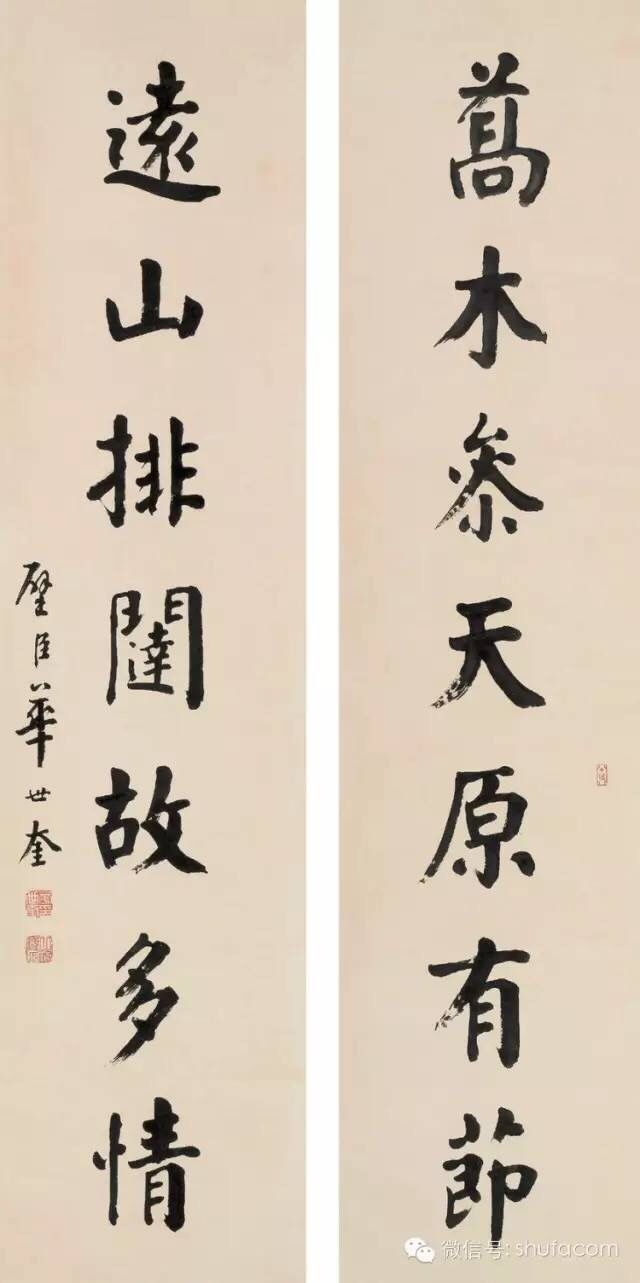 喬木參天原有節
遠山排闥故多情
璧臣華世奎
微信号: shufacom